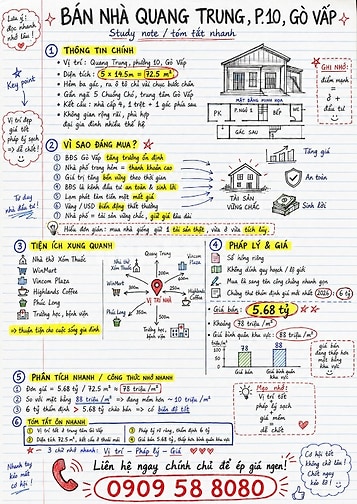 BÁN NHÀ QUANG TRUNG, P.10, GÒ VẤP
Study note / tóm tắt nhanh
Lưu ý!
đọc nhanh
nhớ lâu!
1 THÔNG TIN CHÍNH
Vị trí: Quang Trung, phường 10, Gò Vấp
Diện tích: 5 x 14.5m = 72.5 m²
Hẻm ba gác, ra ô tô chỉ vài chục bước chân
Gần ngã 5 Chuồng Chó, trung tâm Gò Vấp
Kết cấu: nhà cấp 4, 1 trệt + 1 gác phía sau
Không gian rộng rãi, phù hợp
đại gia đình nhiều thế hệ
MẶT BẰNG MINH HỌA
PK
P.NGỦ
BẾP
WC
GÁC SAU
GHI NHỚ:
điểm
mạnh
=
ở
+
đầu
tư
Key point
Vị trí đẹp
giá tốt
pháp lý sạch
=> dễ chốt!
2 VÌ SAO ĐÁNG MUA?
BĐS Gò Vấp tăng trưởng ổn định
Nhà phố trong hẻm = thanh khoản cao
Giá trị tăng bền vững theo thời gian
BĐS là kênh đầu tư an toàn & sinh lời
Lạm phát làm tiền mất giá
Vàng / USD biến động thất thường
Nhà phố = tài sản vững chắc, giữ giá lâu dài
TÀI SẢN
VỮNG CHẮC
Tăng giá
An toàn
Sinh lời
Hiểu đơn giản: mua nhà giống giữ 1 tài sản thật, vừa ở vừa tích lũy.
Tư duy
nhà đầu tư!
3 TIỆN ÍCH XUNG QUANH
Nhà thờ Xóm Thuốc
WinMart
Vincom Plaza
Highlands Coffee
Phúc Long
Trường học, bệnh viện
=> thuận tiện cho cuộc sống gia đình
Quang Trung
Nhà thờ
Xóm Thuốc
Vincom
Plaza
WinMart
Highlands
Coffee
VỊ TRÍ NHÀ
Phúc
Long
Trường học,
bệnh viện
4 PHÁP LÝ & GIÁ
Sổ hồng riêng
Không dính quy hoạch / lộ giới
Mua là sang tên công chứng nhanh gọn
Chứng thư thẩm định giá mới nhất 2026: 6 tỷ
Giá bán: 5.68 tỷ
Khoảng 78 triệu/m²
Giá bình quân khu vực: 88 triệu/m²
triệu/m²
78
88
Giá bán
Giá bình quân
khu vực
giá bán
đang thấp
hơn mặt
bằng khu
vực
5 PHÂN TÍCH NHANH / CÔNG THỨC NHỚ NHANH
Đơn giá = 5.68 tỷ / 72.5 m² ≈ 78 triệu/m²
So với mặt bằng 88 triệu/m² => đang mềm hơn ~ 10 triệu/m²
6 tỷ thẩm định > 5.68 tỷ chào bán => có biên độ tốt
Mẹo nhớ:
Vị trí tốt
pháp lý
sạch
giá mềm
dễ
chốt
6 TÓM TẮT ÔN NHANH
Vị trí tốt ở trung tâm Gò Vấp
Pháp lý rõ ràng, thẩm định 6 tỷ
Giá bán 5.68 tỷ, thấp hơn bình quân khu vực
3 chữ nhớ nhanh: Vị trí - Pháp lý - Giá
Nhanh tay
kẻo mất
cơ hội!
Liên hệ ngay chính chủ để ép giá ngen!
0909 58 8080
Cơ hội tốt
không chờ lâu!
Chốt ngay
kẻo lỡ!